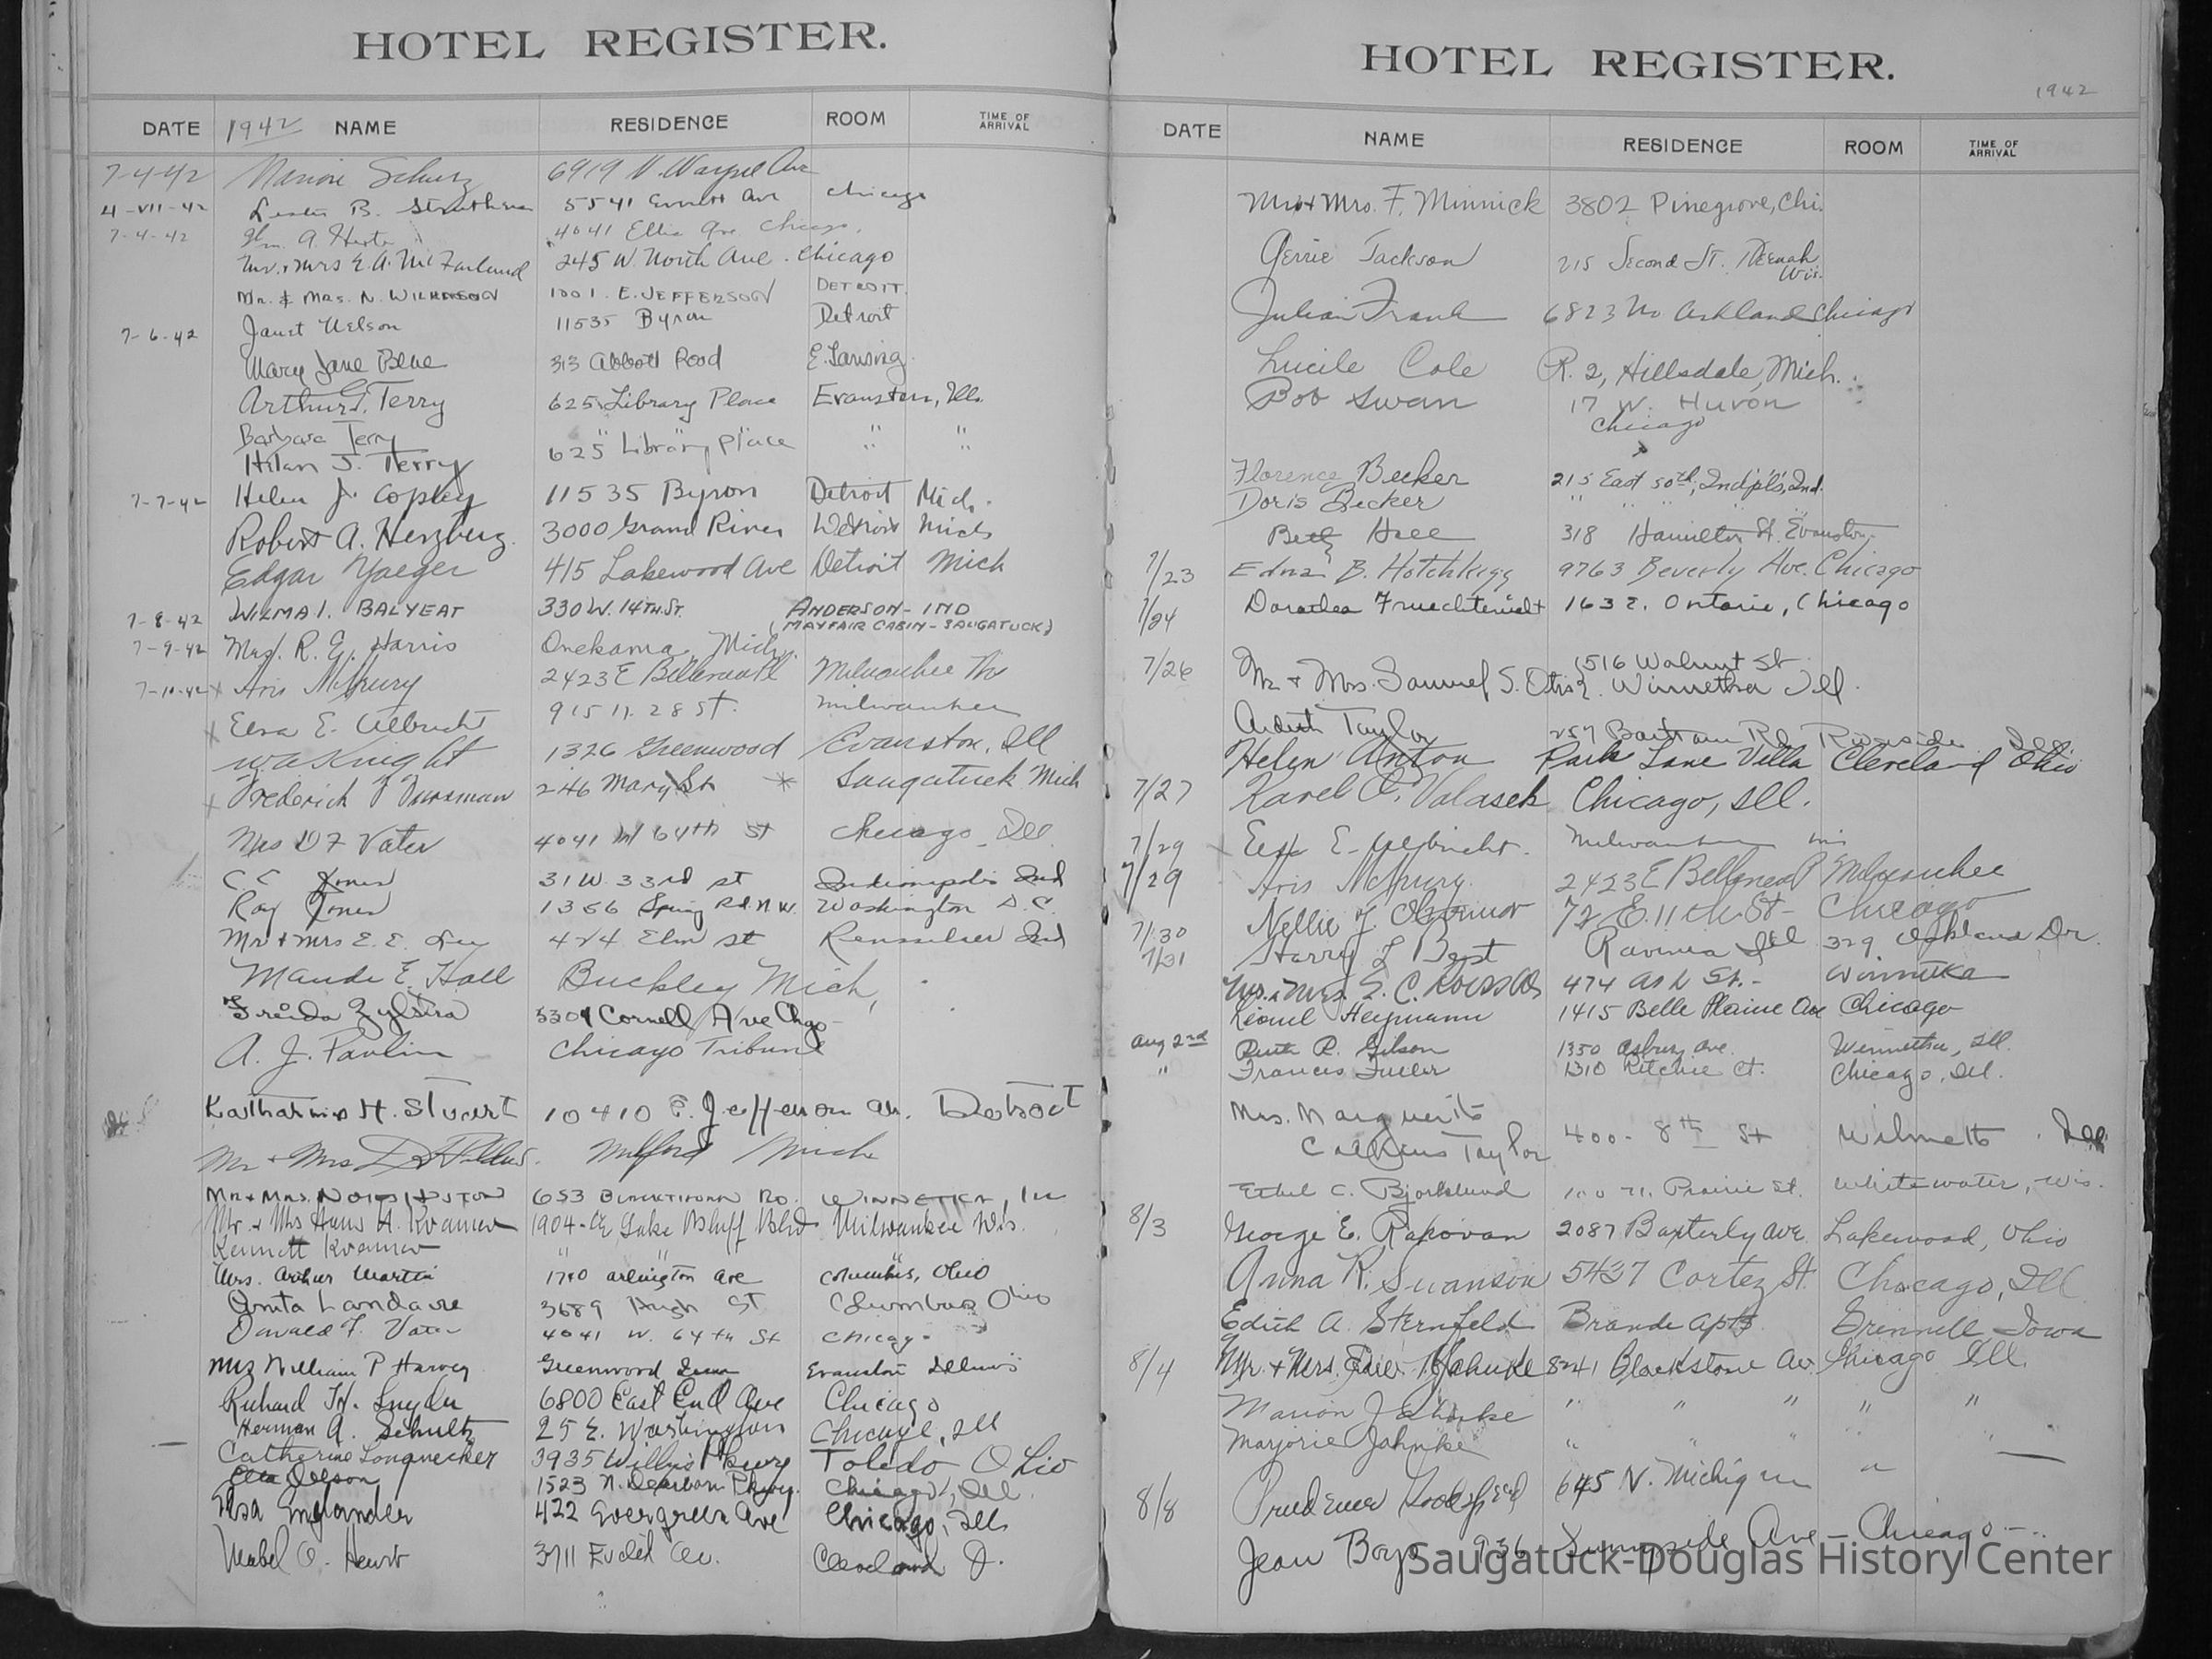 HOTEL REGISTER.
DATE 1942 NAME RESIDENCE ROOM TIME OF ARRIVAL
7-4-42 Schurz 6919 N. Wayne Ave
4-VII-42 Lester B. Struthers 5541 Everett Ave Chicago
7-4-42 Wm. A. 4041 Ellis Ave Chicago.
Mr. & Mrs E. A. McFarland 245 W. North Ave. Chicago
Mr. & Mrs. N. Wilkinson 1001. E. JEFFERSON DETROIT.
7-6-42 Janet Nelson 11535 Byron Detroit
Mary Jane Blue 313 Abbott Road E. Lansing.
Arthur T. Terry 625 Library Place Evanston, Ill.
Barbara Terry 625 Library place " "
Hilan J. Terry
7-7-42 Helen J. Copley 11535 Byron Detroit Mich.
Robert A. Herzberg. 3000 Grand River Detroit Mich
Edgar Yaeger 415 Lakewood Ave Detroit Mich
7-8-42 WILMA I. BALYEAT 330 W. 14TH. ST. ANDERSON - IND
(MAYFAIR CABIN - SAUGATUCK)
7-9-42 Mrs. R. E. Harris Onekama, Mich.
7-10-42 x 2423 E Milwaukee
x Elsa E. Ulbricht 915 N. 28 ST. Milwaukee
W A Knight 1326 Greenwood Evanston, Ill
x Frederick 246 Mary St * Saugatuck Mich
Mrs D F Vater 4041 W 64th St Chicago Ill
C C Jones 31 W. 33rd St Indianapolis Ind
Ray Jones 1356 Spring Rd. N.W. Washington D.C.
Mr & Mrs E. E. 424 Elm St Rensselaer Ind
Maude E. Hall Buckley Mich,
Freida Zylstra 5304 Cornell Ave Chgo
A. J. Paulin Chicago Tribune
Katharine H. Stuart 10410 E. Jefferson av. Detroit
Mr & Mrs Milford Mich
Mr & Mrs. 653 BLACKTHORN RD. WINNETKA, Ill
Mr. & Mrs Hans A. Kramer 1904-E Lake Bluff Blvd Milwaukee Wis.
Kenneth Kraemer " " "
Mrs. Arthur Martin 1740 Arlington Ave Columbus, Ohio
Anita Landacre 3689 High St Columbus Ohio
Donald F. Vater 4041 W. 64th St Chicago
Mrs William P Harvey Greenwood Inn Evanston Illinois
Richard H. Snyder 6800 East End Ave Chicago
Herman A. Schultz 25 E. Washington Chicago, Ill
Catherine Longnecker 3935 Willys Pkwy Toledo Ohio
1523 N. Dearborn Pkwy. Chicago, Ill.
Elsa Englander 422 Evergreen Ave Chicago, Ill
Mabel A. Hewit 3711 Euclid Av. Cleveland O.
HOTEL REGISTER.
1942
DATE NAME RESIDENCE ROOM TIME OF ARRIVAL
Mr & Mrs. F. Minnick 3802 Pinegrove, Chi.
Gerrie Jackson 215 Second St. Neenah
Wis.
Julian Frank 6823 No Ashland Chicago
Lucile Cole R. 2, Hillsdale, Mich.
Bob Swan 17 W. Huron
Chicago
Florence Becker 215 East 50th, Ind'pl's, Ind.
Doris Becker " " " "
Betty Hall 318 Hamilton St. Evanston
7/23 Edna B. Hotchkiss 9763 Beverly Ave. Chicago
7/24 Dorothea Fruechtenicht 163 E. Ontario, Chicago
7/26 Mr & Mrs. Samuel S. Otis 516 Walnut St
Winnetka Ill.
Ardith Taylor 257 Bartram Rd Riverside Ill
Helen Anton Park Lane Villa Cleveland Ohio
7/27 Karel C. Valasek Chicago, Ill.
7/29 x E. Ulbricht. Milwaukee Wis
7/29 2423 E Milwaukee
7/30 Nellie J. O'Connor 72 E. 11th St - Chicago
7/31 Harry L Best Ravinia Ill 329 Oakland Dr.
Mr. & Mrs. E. C. 474 Ash St. - Winnetka
Leonel Heymann 1415 Belle Plaine Ave Chicago
Aug 2nd Ruth P. Gilson 1350 Asbury Ave. Winnetka, Ill.
" Frances Fuller 1310 Ritchie Ct. Chicago, Ill.
Mrs. Marguerite
Calkins Taylor 400 - 8th St Wilmette. Ill
Ethel C. Bjorklund 100 N. Prairie St. Whitewater, Wis.
8/3 George E. Rakovan 2087 Baxterly Ave. Lakewood, Ohio
Anna R. Swanson 5437 Cortez St. Chicago, Ill
Edith A. Sternfeld Brande Apts Grinnell Iowa
8/4 Mr. & Mrs. Jahnke 8241 Blackstone Av. Chicago Ill.
Marion Jahnke " " " " "
Marjorie Jahnke " " " " "
8/8 645 N. Michigan "
Jean Boyo 936 Sunnyside Ave - Chicago -
Saugatuck-Douglas History Center